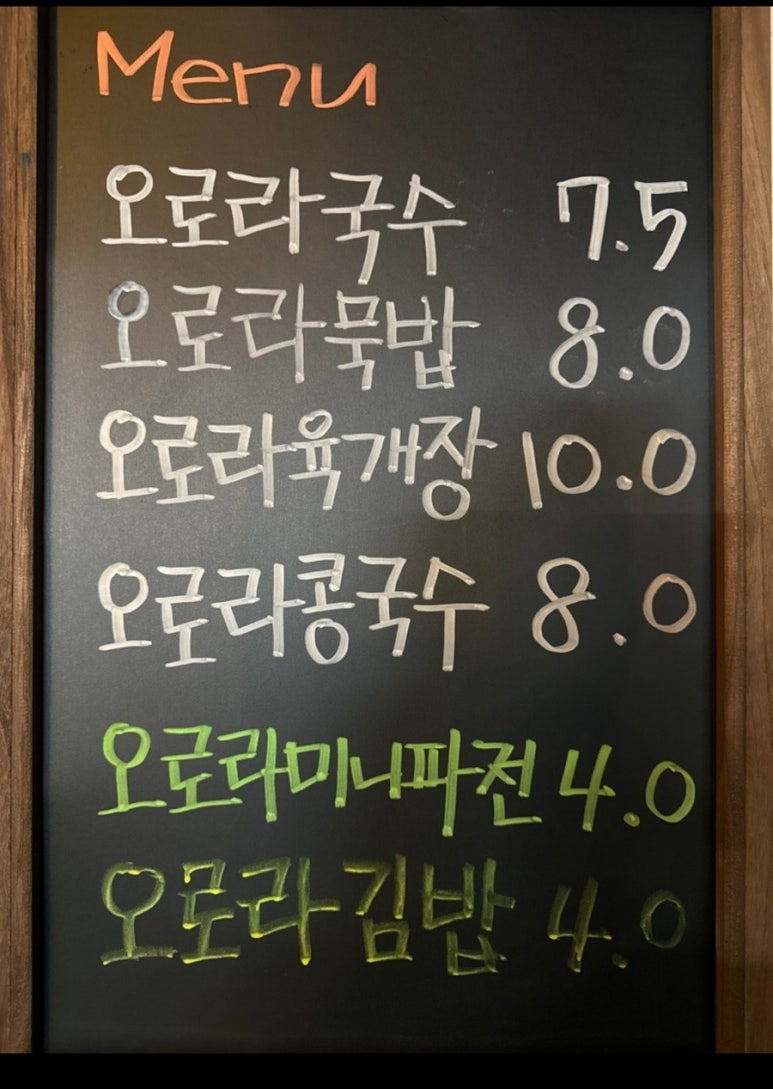 Menu
오로라국수 7.5
오로라묵밥 8.0
오로라육개장 10.0
오로라콩국수 8.0
오로라미니파전 4.0
오로라김밥 4.0